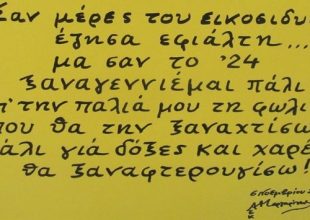 Σαν μέρες του εικοσιδυ
έζησα εφιάλτη...
μα σαν το '24
ξαναγεννιέμαι πάλι
π' την παλιά μου τη φωλι
που θα την ξαναχτίσω
άλι γιά δόξες και χαρέ
θα ξαναφτερουγίσω!